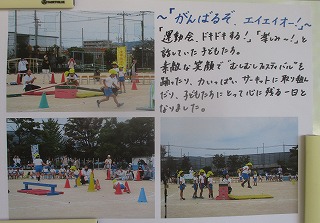 ～「がんばるぞ、エイエイオー！」～
「運動会、ドキドキする！」「楽しみ～！」と
話していた子どもたち。
素敵な笑顔で“むしむしフェスティバル”を
踊ったり、力いっぱい サーキットに取り組
んだり、子どもたちにとって心に残る一日と
なりました。